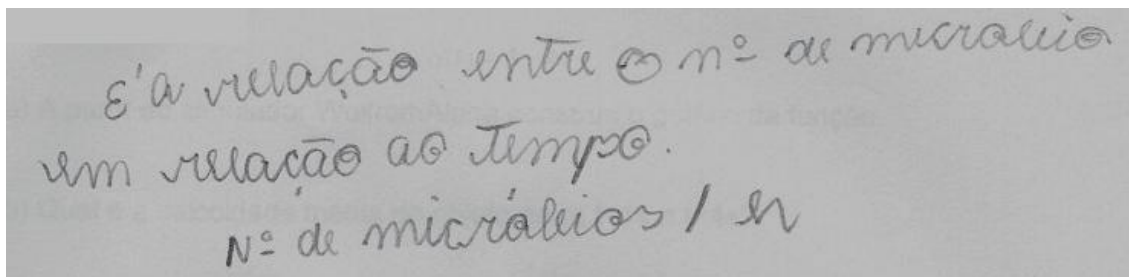 É a relação entre o nº de micróbio
em relação ao tempo.
Nº de micróbios / h